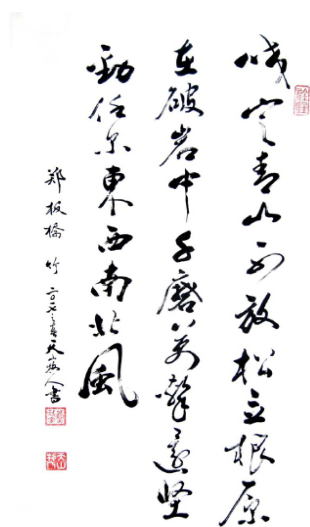 咬定青山不放松立根原
在破岩中千磨万擊還坚
勁任尔東西南北風
郑板橋 竹 書